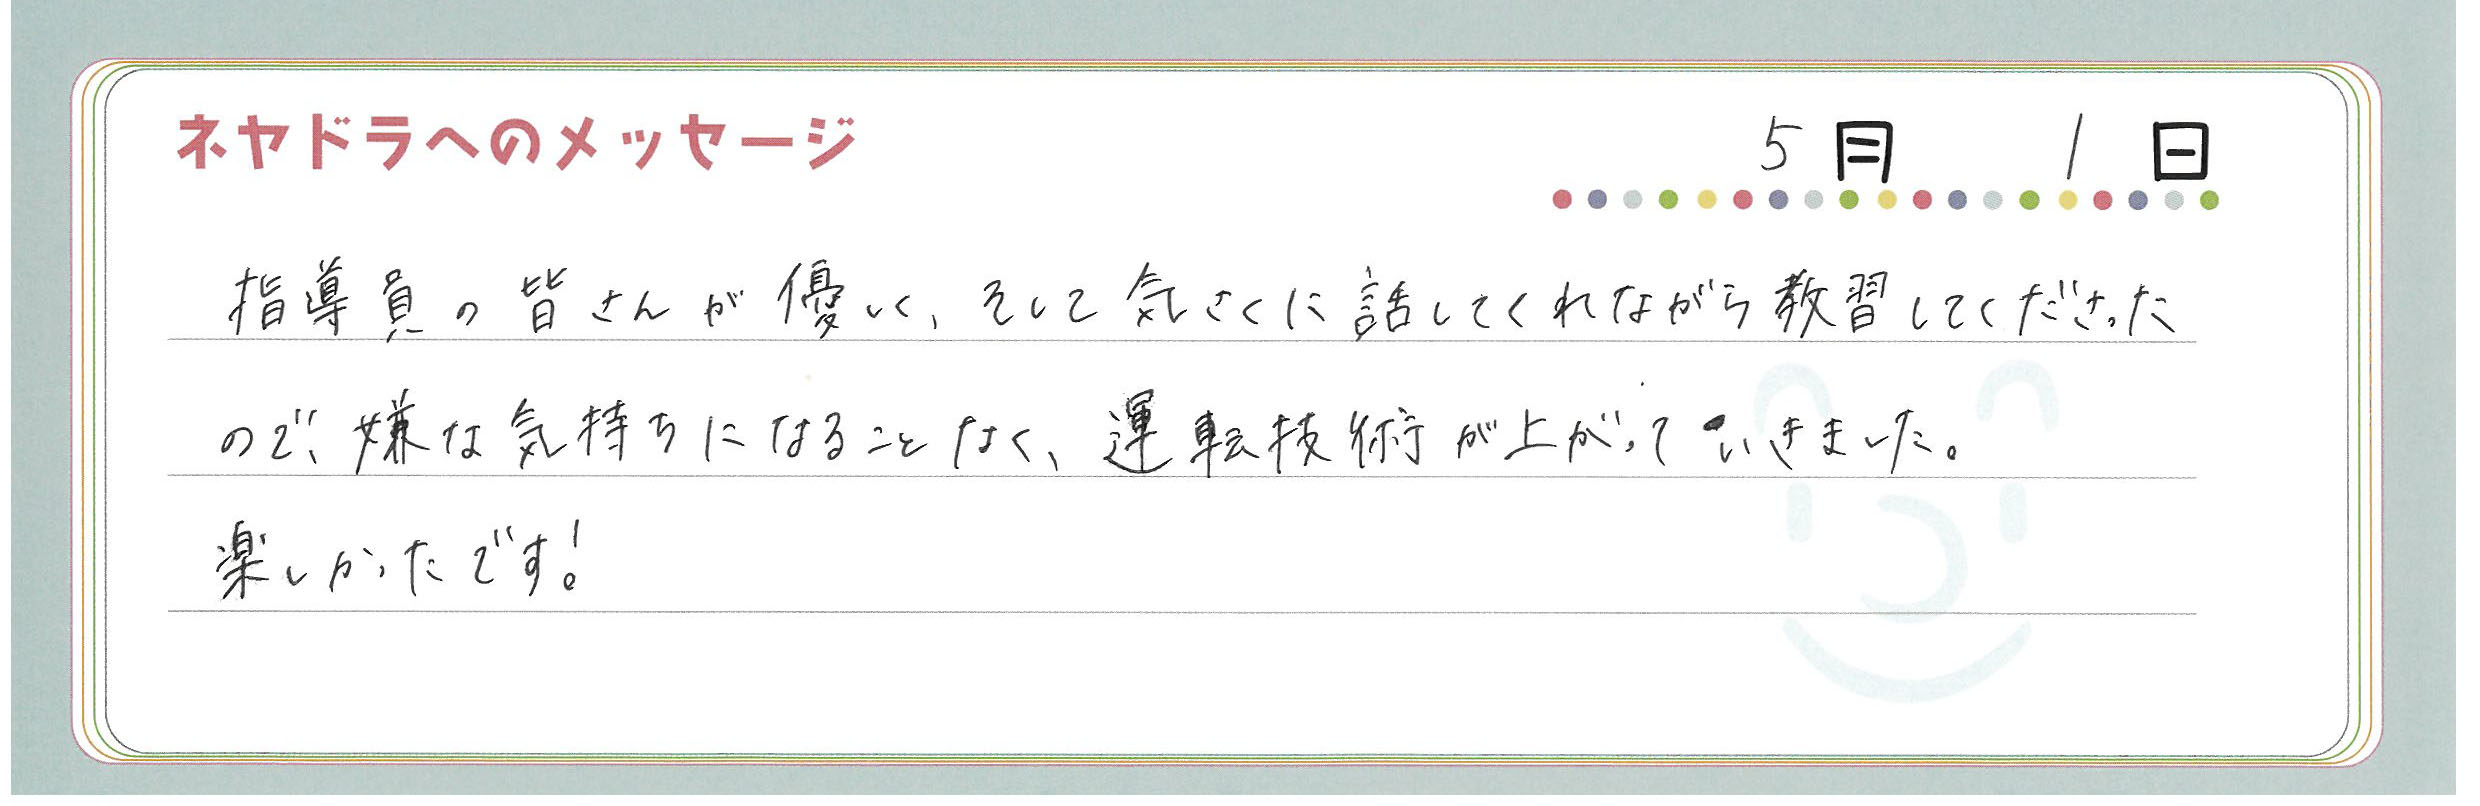 ネヤドラへのメッセージ
5月 1日
指導員の皆さんが優しく、そして気さくに話してくれながら教習してくださった
ので、嫌な気持ちになることなく、運転技術が上がっていきました。
楽しかったです!